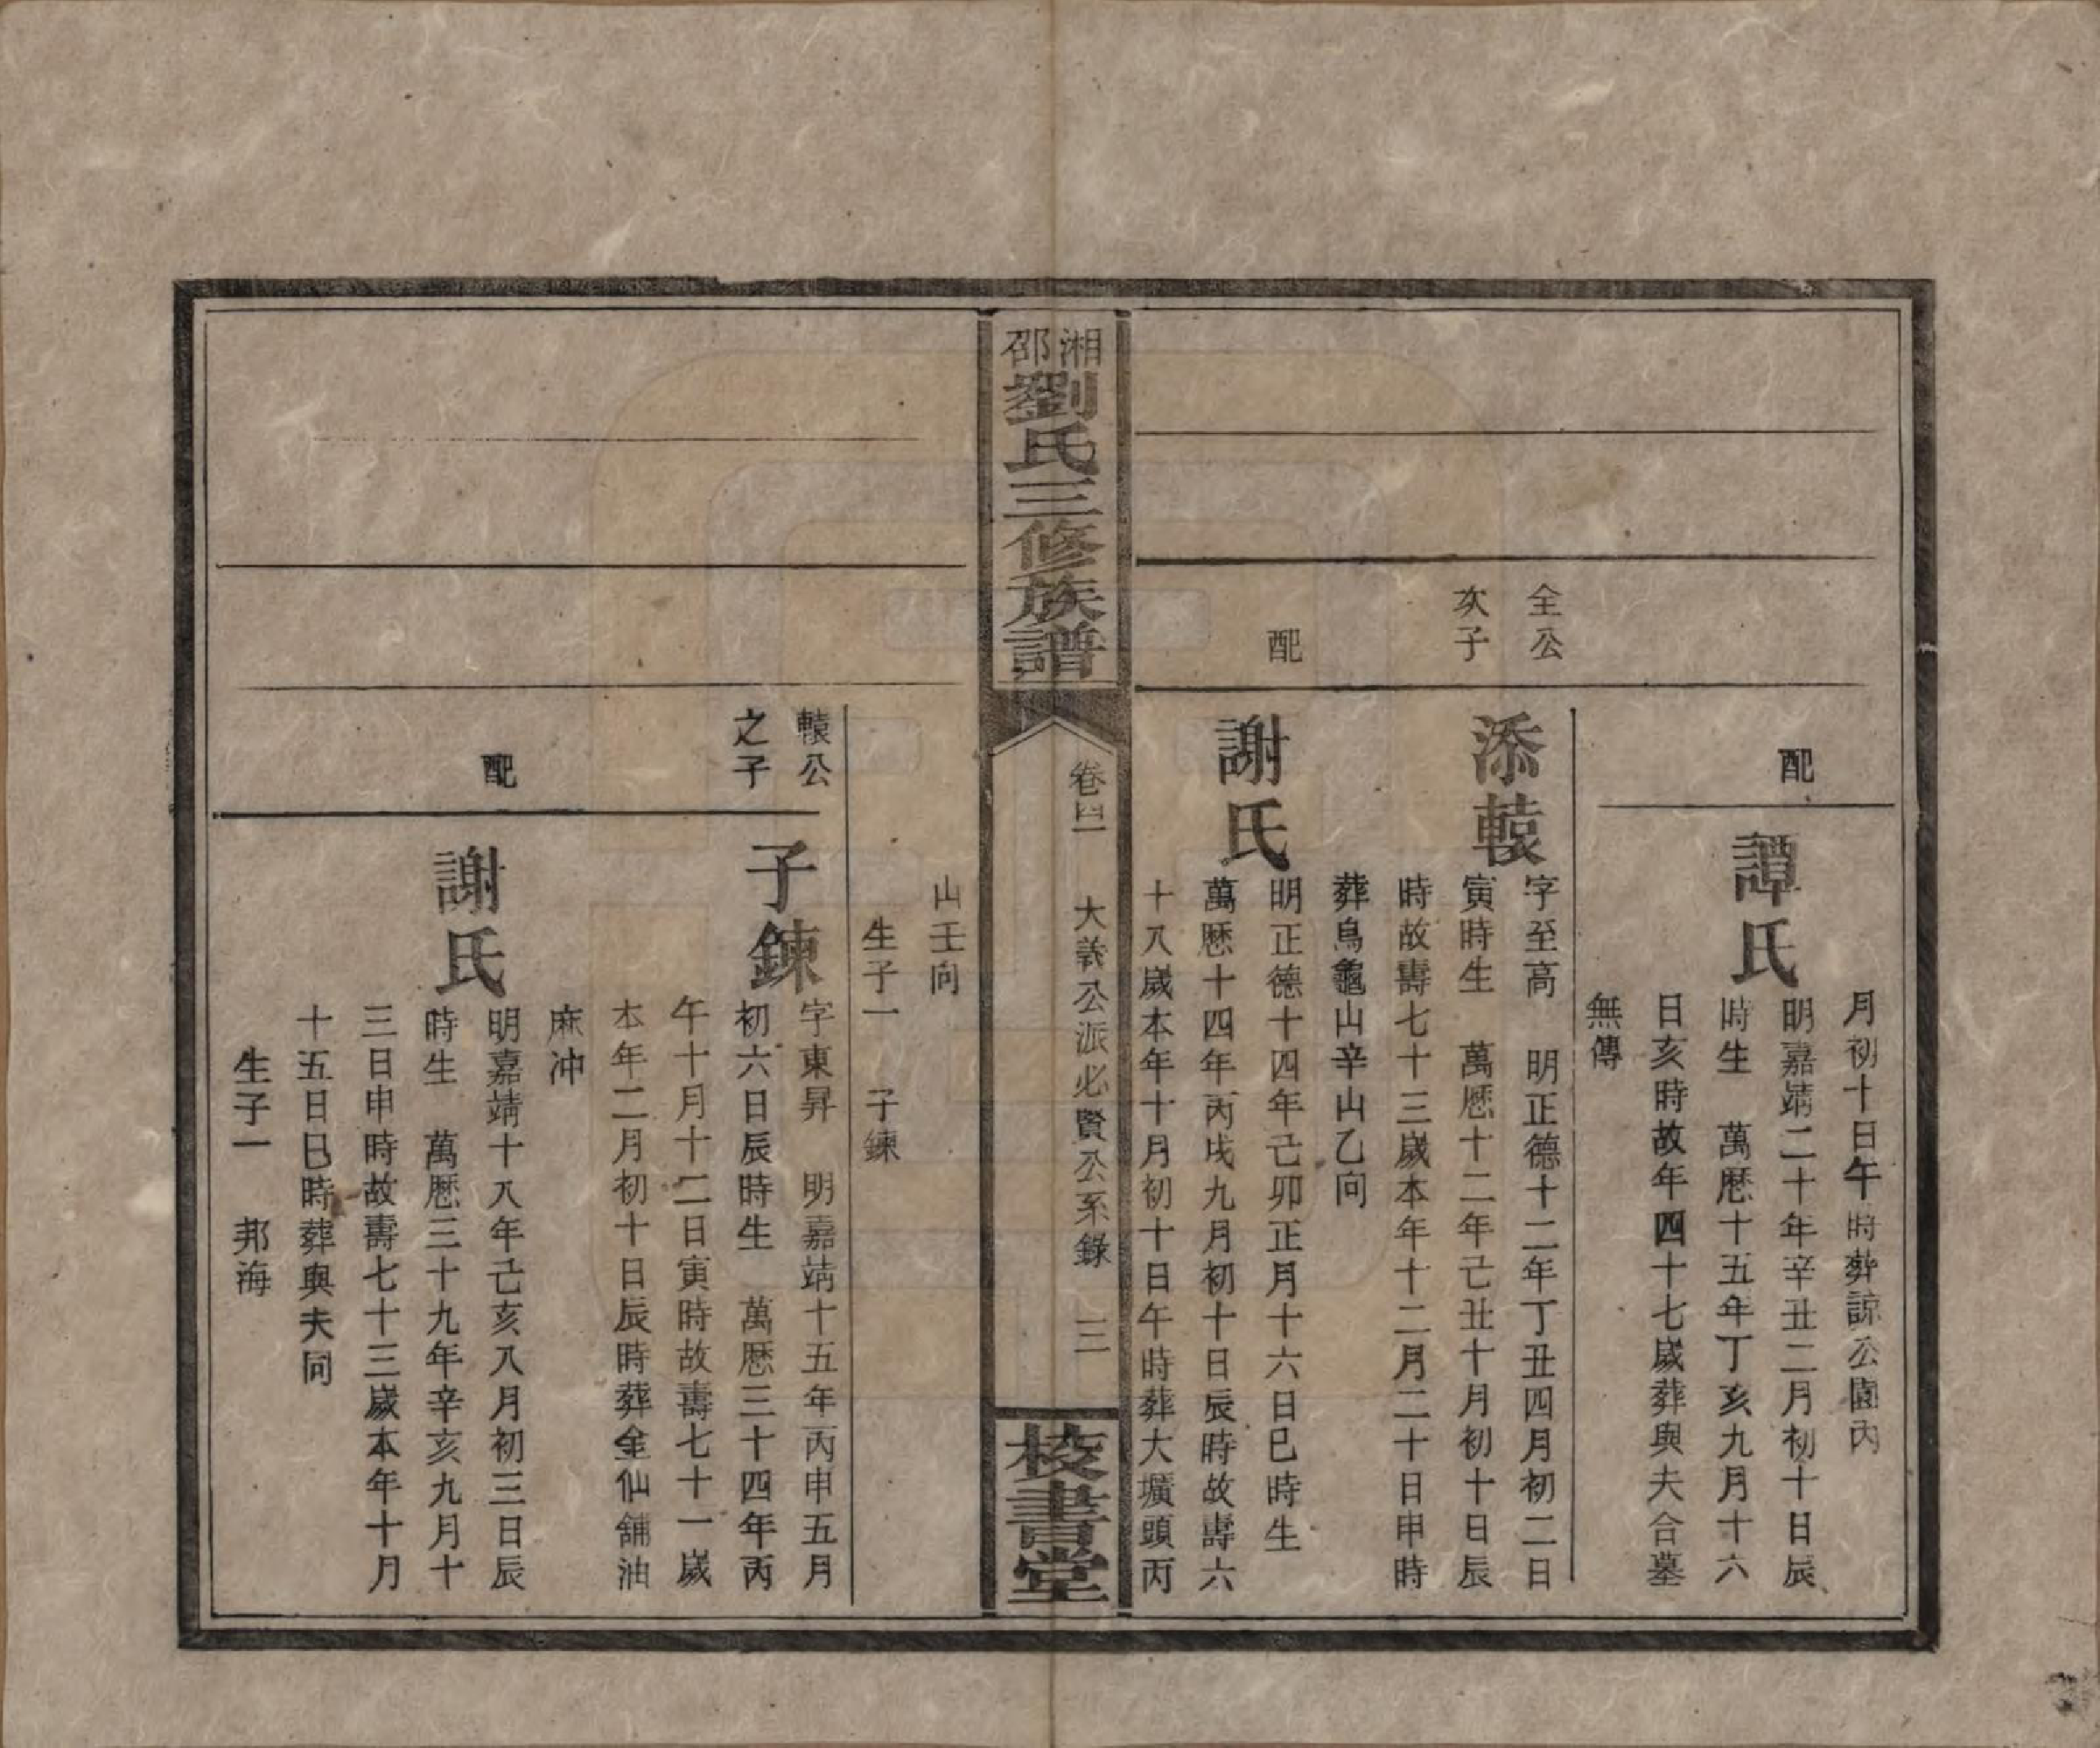 月初十日午時葬諒公園內
配
譚氏
明嘉靖二十年辛丑二月初十日辰
時生 萬歷十五年丁亥九月十六
日亥時故年四十七歲葬與夫合墓
無傳
全公
次子
添轅
字至高 明正德十二年丁丑四月初二日
寅時生 萬歷十二年己丑十月初十日辰
時故壽七十三歲本年十二月二十日申時
葬烏龜山辛山乙向
配
謝氏
明正德十四年己卯正月十六日巳時生
萬歷十四年丙戌九月初十日辰時故壽六
十八歲本年十月初十日午時葬大壙頭丙
湘邵劉氏三修族譜
卷四 大義公派必賢公系錄 三
校書堂
山壬向
生子一 子鍊
轅公
之子
子鍊
字東昇 明嘉靖十五年丙申五月
初六日辰時生 萬歷三十四年丙
午十月十二日寅時故壽七十一歲
本年二月初十日辰時葬金仙舖油
麻冲
配
謝氏
明嘉靖十八年己亥八月初三日辰
時生 萬歷三十九年辛亥九月十
三日申時故壽七十三歲本年十月
十五日巳時葬與夫同
生子一 邦海